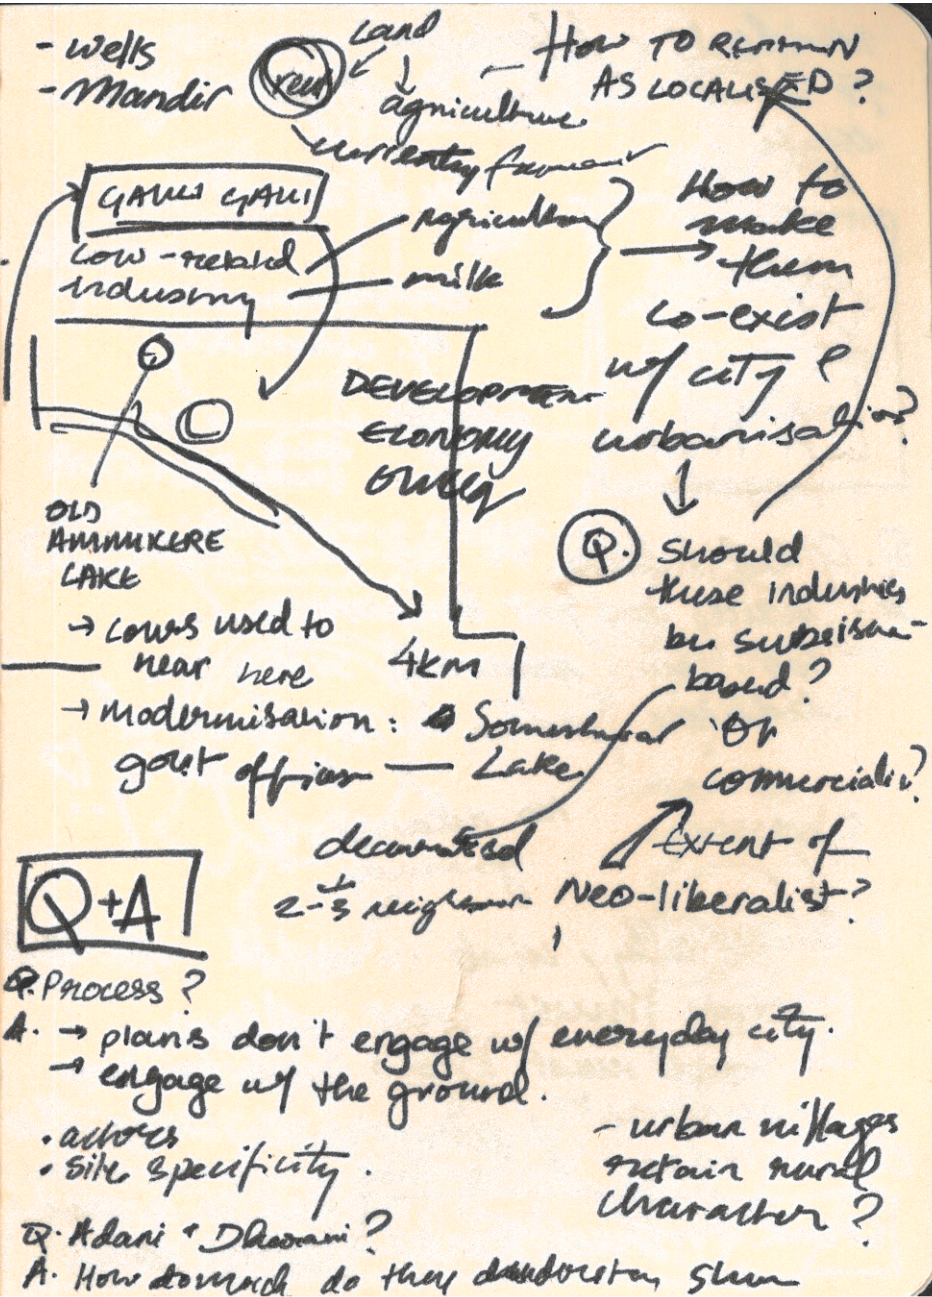 - wells
- Mandir
Land
agriculture
- HOW TO REMAIN
AS LOCALISED ?
currently
GAULI GALLI
Cow-related
industry
agriculture
milk
How to
make
them
co-exist
w/ city &
urbanisation?
DEVELOPMENT
ECONOMY
OLD
AMMIKERE
LAKE
→ cows used to
near here
→ modernisation:
govt offices — Someshwar
Lake
4km
Q. should
these industries
be
based?
or
commercial
Extent of
Neo-liberalist?
2-3
Q+A
Q. Process?
A. → plans don't engage w/ everyday city.
→ engage w/ the ground.
• actors
• site specificity.
- urban villages
retain rural
character?
Q. Adani & Dharavi?
A. How do they slum